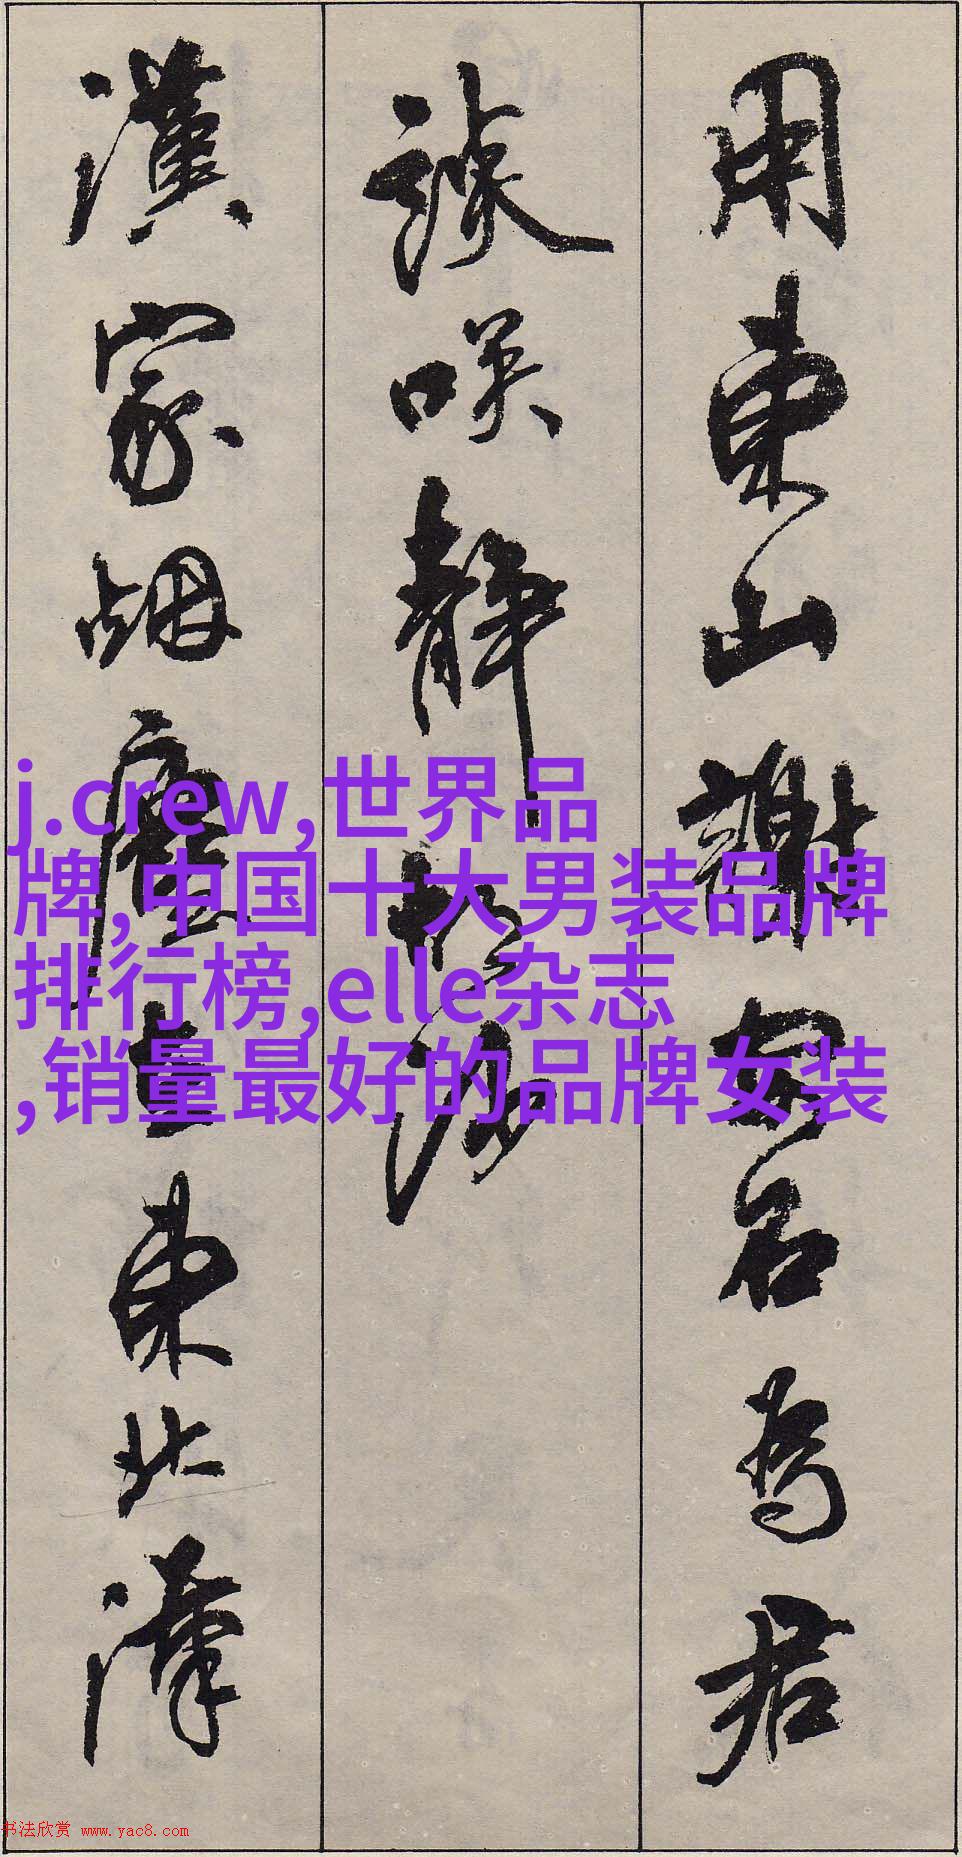 用東山謝安石為君
談咲靜胡沙
漢家烟塵在東北漢
j.crew,世界品
牌,中国十大男装品牌
排行榜,elle杂志
,销量最好的品牌女装
书法欣赏 www.yac8.com